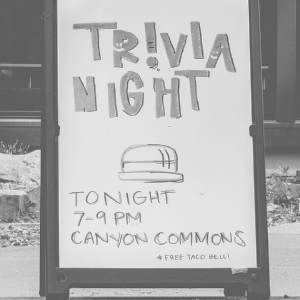 TR!VIA
NIGHT
TONIGHT
7-9 PM
CANYON COMMONS
* FREE TACO BELL!